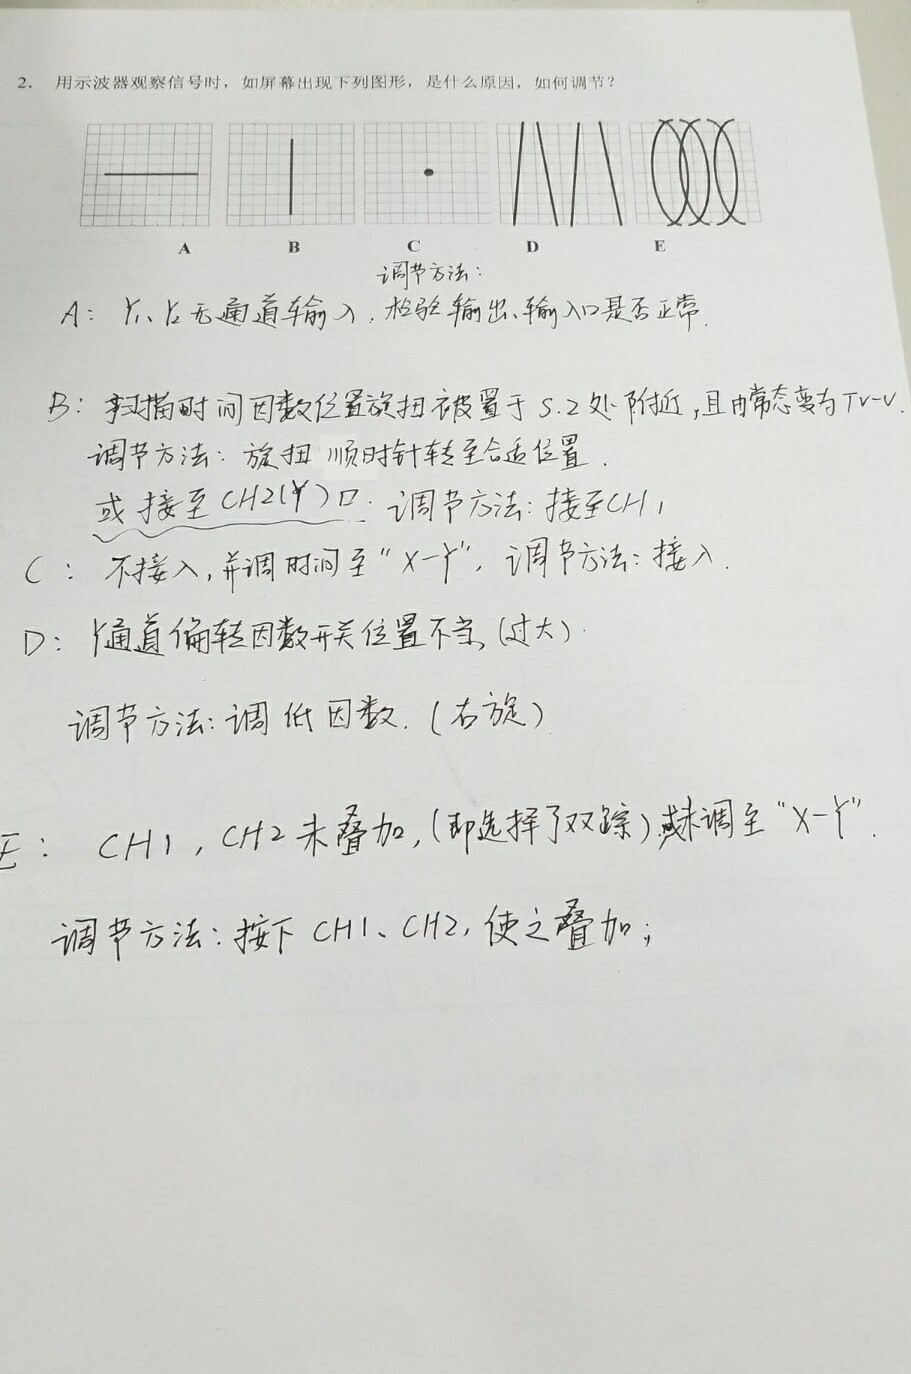 2. 用示波器观察信号时，如屏幕出现下列图形，是什么原因，如何调节？
A B C D E
调节方法：
A： Y₁、Y₂无通道输入．检验输出、输入口是否正常．
B： 扫描时间因数位置旋扭被置于 S.2处附近，且由常态变为TV-V．
调节方法：旋扭 顺时针转至合适位置．
或 接至CH2(Y)口． 调节方法：接至CH1
C： 不接入，并调时间至“X-Y”，调节方法：接入．
D： Y通道偏转因数开关位置不当（过大）．
调节方法：调低因数．(右旋)
E： CH1，CH2未叠加，(即选择了双踪)或未调至“X-Y”．
调节方法：按下 CH1、CH2，使之叠加；